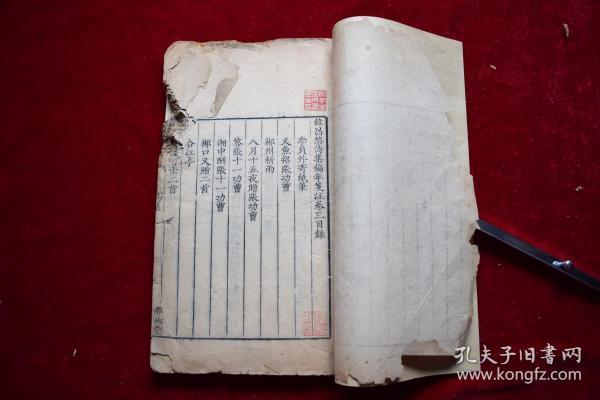 韓昌黎詩集編年箋注卷三目錄
李員外寄紙筆
叉魚招張功曹
郴州祈雨
八月十五夜贈張功曹
答張十一功曹
湘中酬張十一功曹
郴口又贈二首
合江亭
十二首
孔夫子旧书网
www.kongfz.com